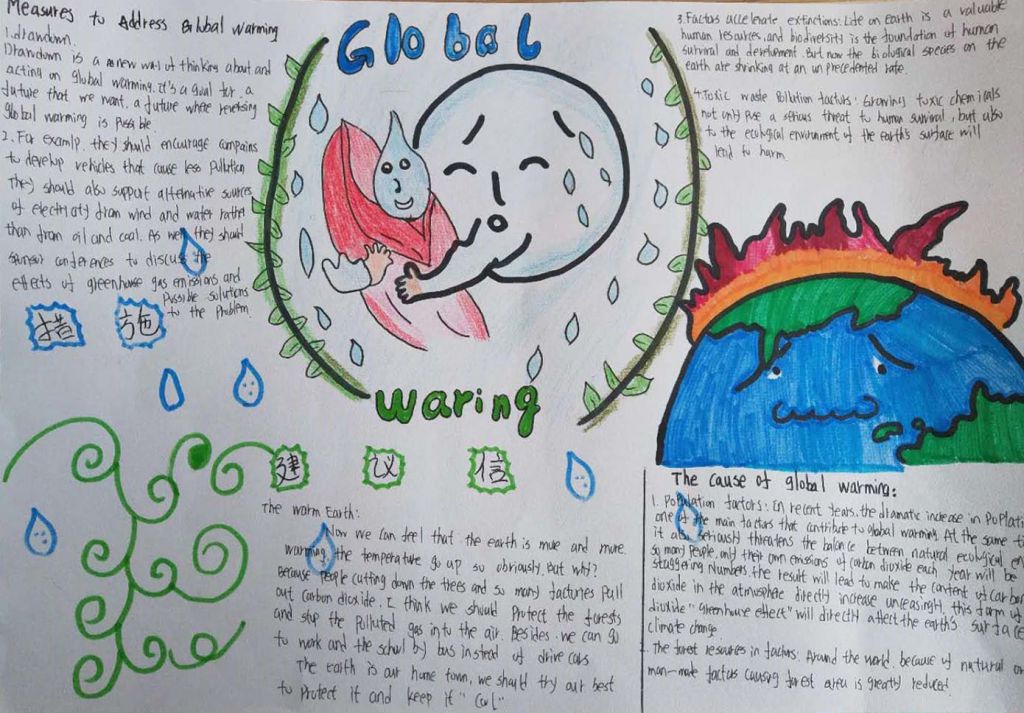 Measures to Address Global Warming
1. drawdown.
Drawdown is a new way of thinking about and
acting on global warming. it's a goal for a
future that we want. a future where reversing
global warming is possible
2. For examlp. they should encourage compains
to develop vehicles that cause less pollution
They should also support alternative sources
of electricity from wind and water rathe
than from oil and coal. As well they should
sponsor conferences to discuss the
effects of greenhouse gas emissions and
possible solutions
to the problem.
措 施
Global
waring
3. Factors accelerate extinctions: Life on Earth is a valuable
human resources, and biodiversity is the foundation of human
survival and development. But now the biological species on the
earth are shrinking at an unprecedented rate.
4. Toxic waste Pollution factors: Growing toxic chemicals
not only pose a serious threat to human survival, but also
to the ecological environment of the earth's surface will
lead to harm.
建 议 信
The warm Earth:
Now we can feel that the earth is mue and mure
warming. the temperature go up so obviously, but why?
Because people cutting down the trees and so many factories pull
out carbon dioxide. I think we should Protect the forests
and stop the polluted gas into the air. Besides. we can go
to work and the school by bus instead of drive cars
The earth is our home town, we should try our best
to protect it and keep it "Cool"
The cause of global warming:
1. Population factors: In recent years. the dramatic increase in Poplati
one of the main factors that contribute to global warming. At the same t
it also seriously threatens the balance between natural ecological en
so many people. only their own emissions of carbon dioxide each year will be
staggering numbers. the result will lead to make the content of carbo
dioxide in the atmosphere directly increase unceasinglt, this form of
dioxide "greenhouse effect" will directly affect the earth's surface
climate change
2. The forest resources in factors. Around the world. because of natural or
man-made factors causing forest area is greatly reduced.